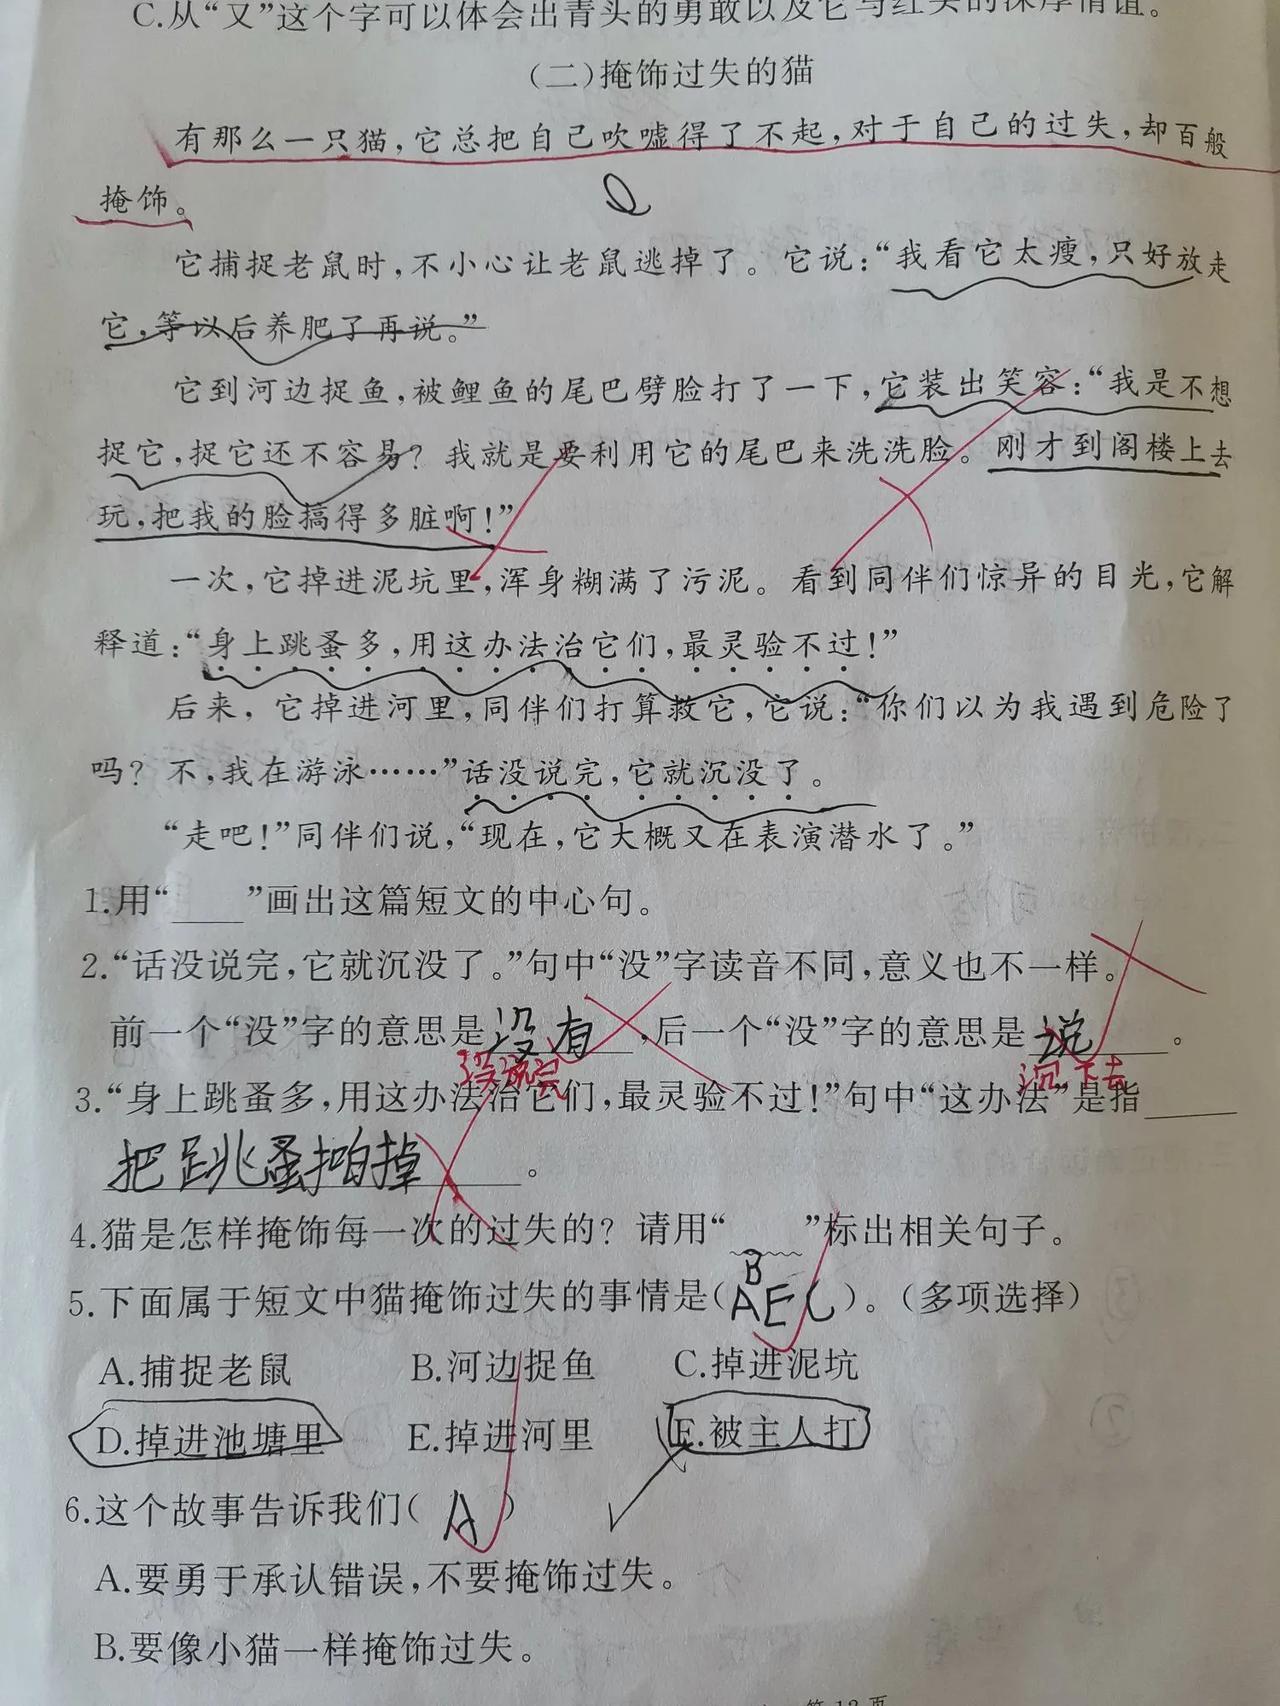 C.从“又”这个字可以体会出青头的勇敢以及它与红头的深厚情谊。
(二)掩饰过失的猫
有那么一只猫,它总把自己吹嘘得了不起,对于自己的过失,却百般
掩饰。
它捕捉老鼠时,不小心让老鼠逃掉了。它说:“我看它太瘦,只好放走
它,等以后养肥了再说。”
它到河边捉鱼,被鲤鱼的尾巴劈脸打了一下,它装出笑容:“我是不想
捉它,捉它还不容易?我就是要利用它的尾巴来洗洗脸。刚才到阁楼上去
玩,把我的脸搞得多脏啊!”
一次,它掉进泥坑里,浑身糊满了污泥。看到同伴们惊异的目光,它解
释道:“身上跳蚤多,用这办法治它们,最灵验不过!”
后来,它掉进河里,同伴们打算救它,它说:“你们以为我遇到危险了
吗?不,我在游泳……”话没说完,它就沉没了。
“走吧!”同伴们说,“现在,它大概又在表演潜水了。”
1.用“____”画出这篇短文的中心句。
2.“话没说完,它就沉没了。”句中“没”字读音不同,意义也不一样。
前一个“没”字的意思是没有,后一个“没”字的意思是说。
没说完 沉下去
3.“身上跳蚤多,用这办法治它们,最灵验不过!”句中“这办法”是指
把跳蚤拍掉。
4.猫是怎样掩饰每一次的过失的?请用“﹏﹏”标出相关句子。
B
5.下面属于短文中猫掩饰过失的事情是(AEC)。(多项选择)
A.捕捉老鼠 B.河边捉鱼 C.掉进泥坑
D.掉进池塘里 E.掉进河里 F.被主人打
6.这个故事告诉我们(A)
A.要勇于承认错误,不要掩饰过失。
B.要像小猫一样掩饰过失。
第12页